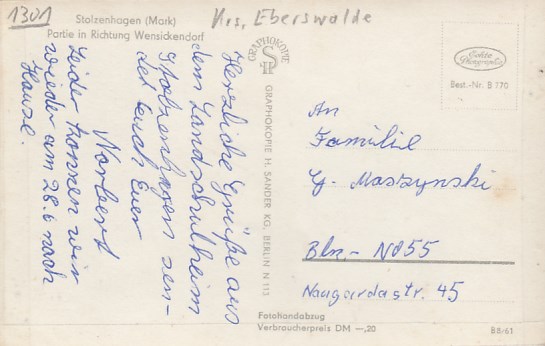 1301
Stolzenhagen (Mark)
Partie in Richtung Wensickendorf
Krs. Eberswalde
Herzliche Grüße aus
dem Landschulheim
Stolzenhagen sen-
det Euch Euer
Norbert
Leider kommen wir
wieder am 28.6 nach
Hause.
GRAPHOKOPIE
GRAPHOKOPIE H. SANDER KG, BERLIN N 113
Echte
Photographie
Best.-Nr. B 770
An
Familie
G. Maszynski
Bln.- NO55
Naugardastr. 45
Fotohandabzug
Verbraucherpreis DM —,20
B 8/61